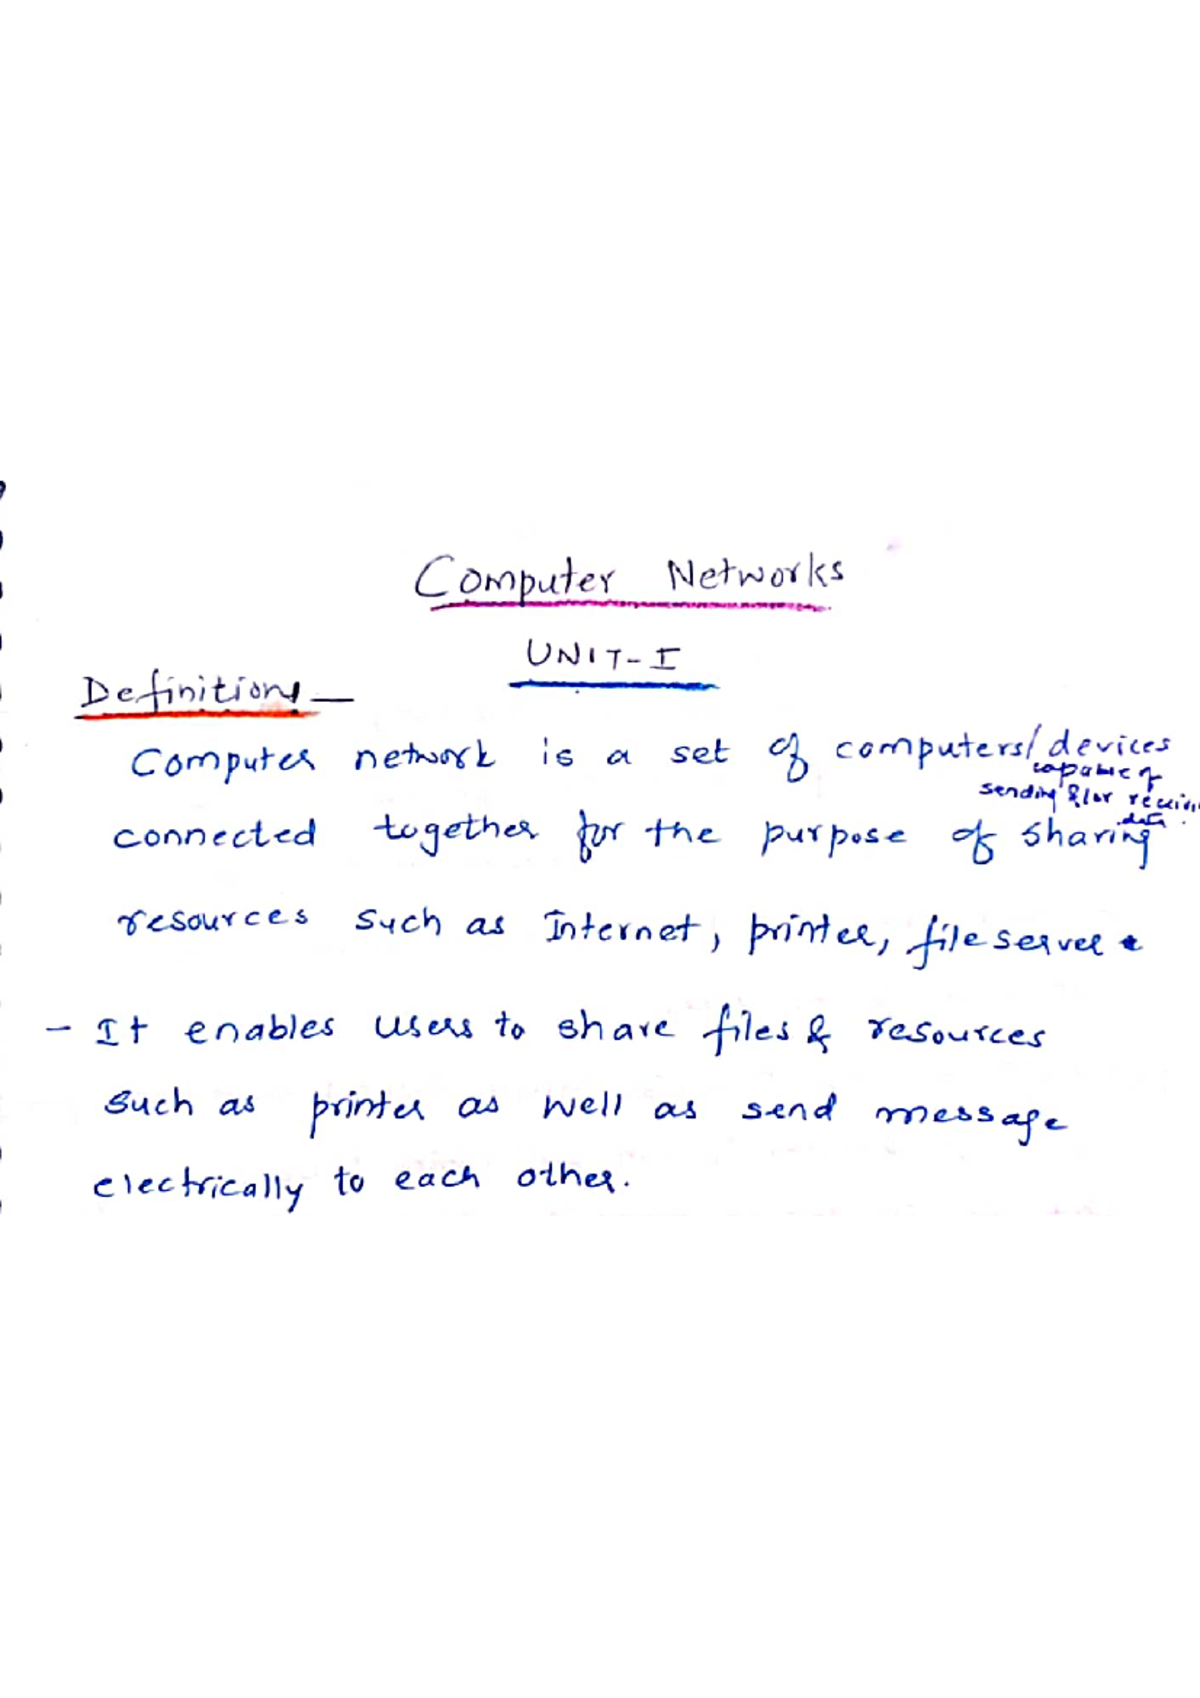 Computer Networks
UNIT-I
Definition —
Computer network is a set of computers/devices
capable of
sending &/or
data.
connected together for the purpose of sharing
resources such as Internet, printer, file server.
- It enables users to share files & resources
such as printer as well as send message
electrically to each other.